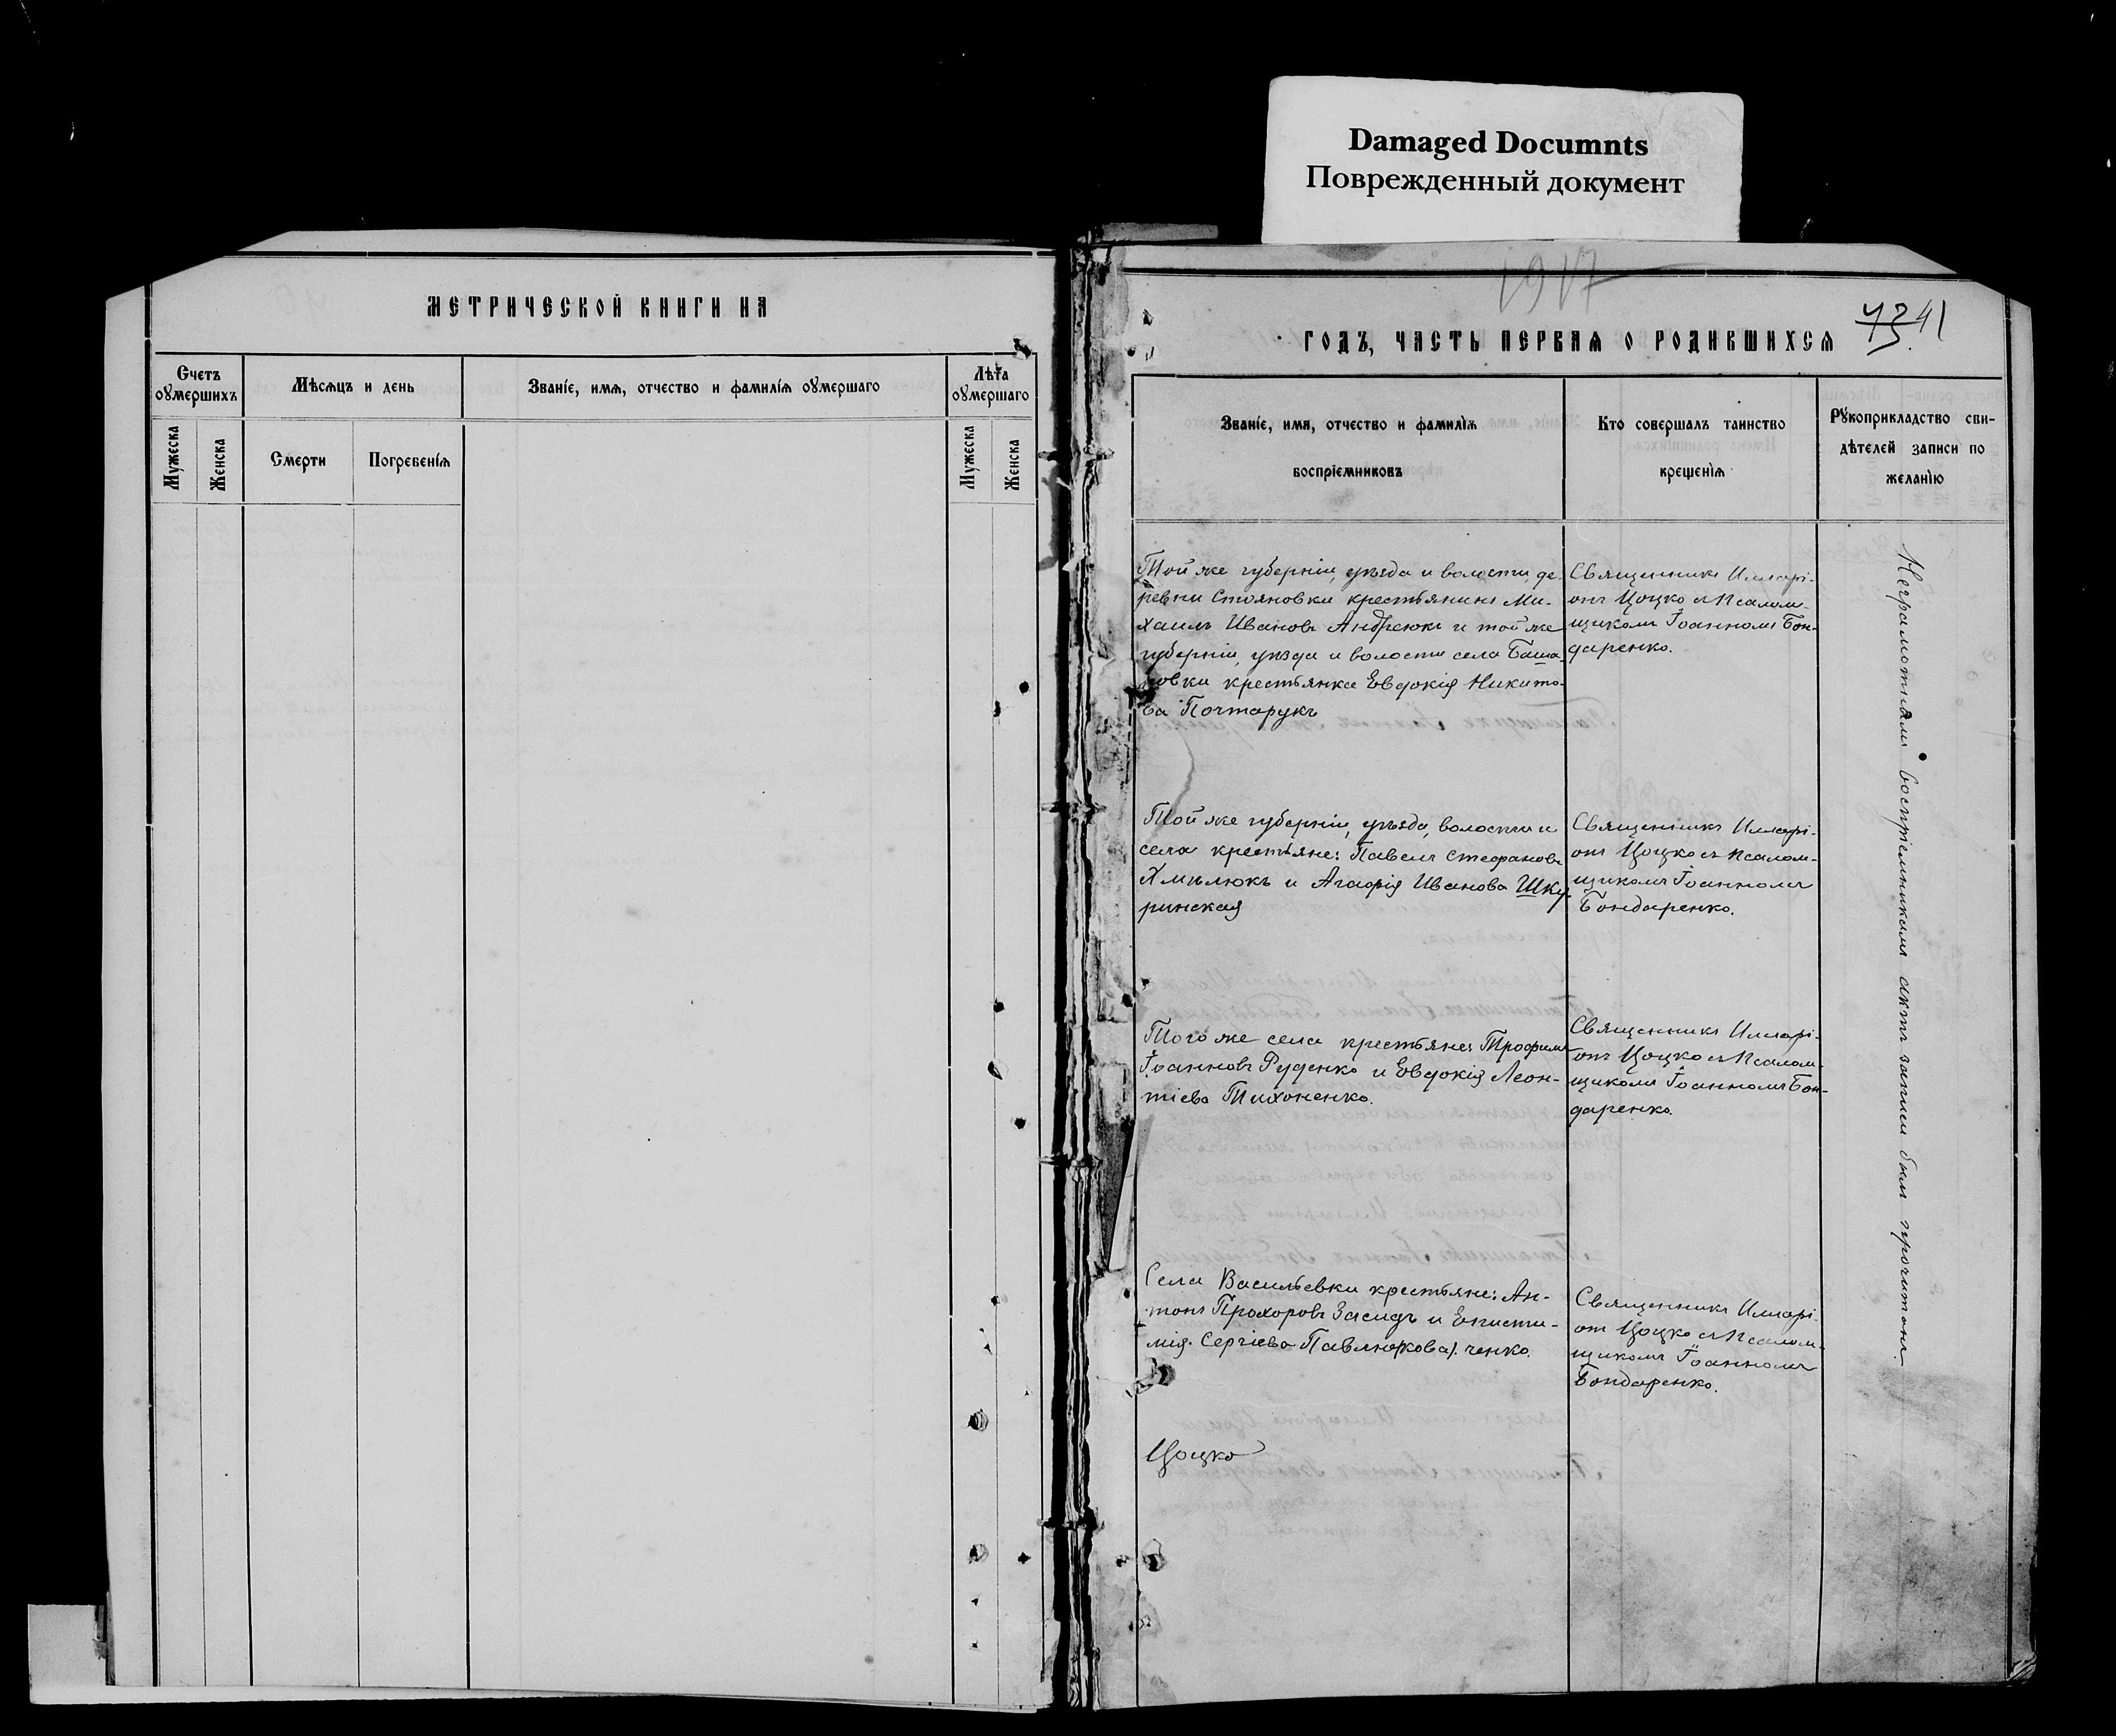 Damaged Documnts
Поврежденный документ
МЕТРИЧЕСКОЙ КНИГИ НА
Счетъ оумершихъ
Мѣсяцъ и день
Званіе, имя, отчество и фамилія оумершаго
Лѣта оумершаго
Мужеска
Женска
Смерти
Погребенія
Мужеска
Женска
1917
73 41
ГОДЪ, ЧАСТЬ ПЕРВАЯ О РОДИВШИХСЯ
Званіе, имя, отчество и фамилія
воспріємниковъ
Кто совершалъ таинство
крещенія
Рукоприкладство сви-
дѣтелей записи по
желанію
Той же губерніи, уѣзда и волости де-
ревни Стояновки крестьянинъ Ми-
хаилъ Ивановъ Андреюкъ и той же
губерніи, уѣзда и волости села Баша-
новки крестьянка Евдокія Никито-
ва Почтарукъ
Священникъ Илларі-
онъ Цоцко съ псалом-
щикомъ Іоанномъ Бон-
даренко.
Той же губерніи, уѣзда, волости и
села крестьяне: Павелъ Стефановъ
Хмѣлюкъ и Агафія Иванова Шку-
ринская
Священникъ Илларі-
онъ Цоцко съ псалом-
щикомъ Іоанномъ
Бондаренко.
Того же села крестьяне: Трофимъ
Іоанновъ Руденко и Евдокія Леон-
тіева Тихоненко.
Священникъ Илларі-
онъ Цоцко съ псалом-
щикомъ Іоанномъ Бон-
даренко.
Села Васильевки крестьяне: Ан-
тонъ Прохоровъ Засидь и Еписти-
мія Сергіева Павлю(кова). ченко.
Священникъ Илларі-
онъ Цоцко съ псалом-
щикомъ Іоанномъ
Бондаренко.
Цоцко
Неграмотнымъ воспріемникамъ актъ записи былъ прочитанъ.